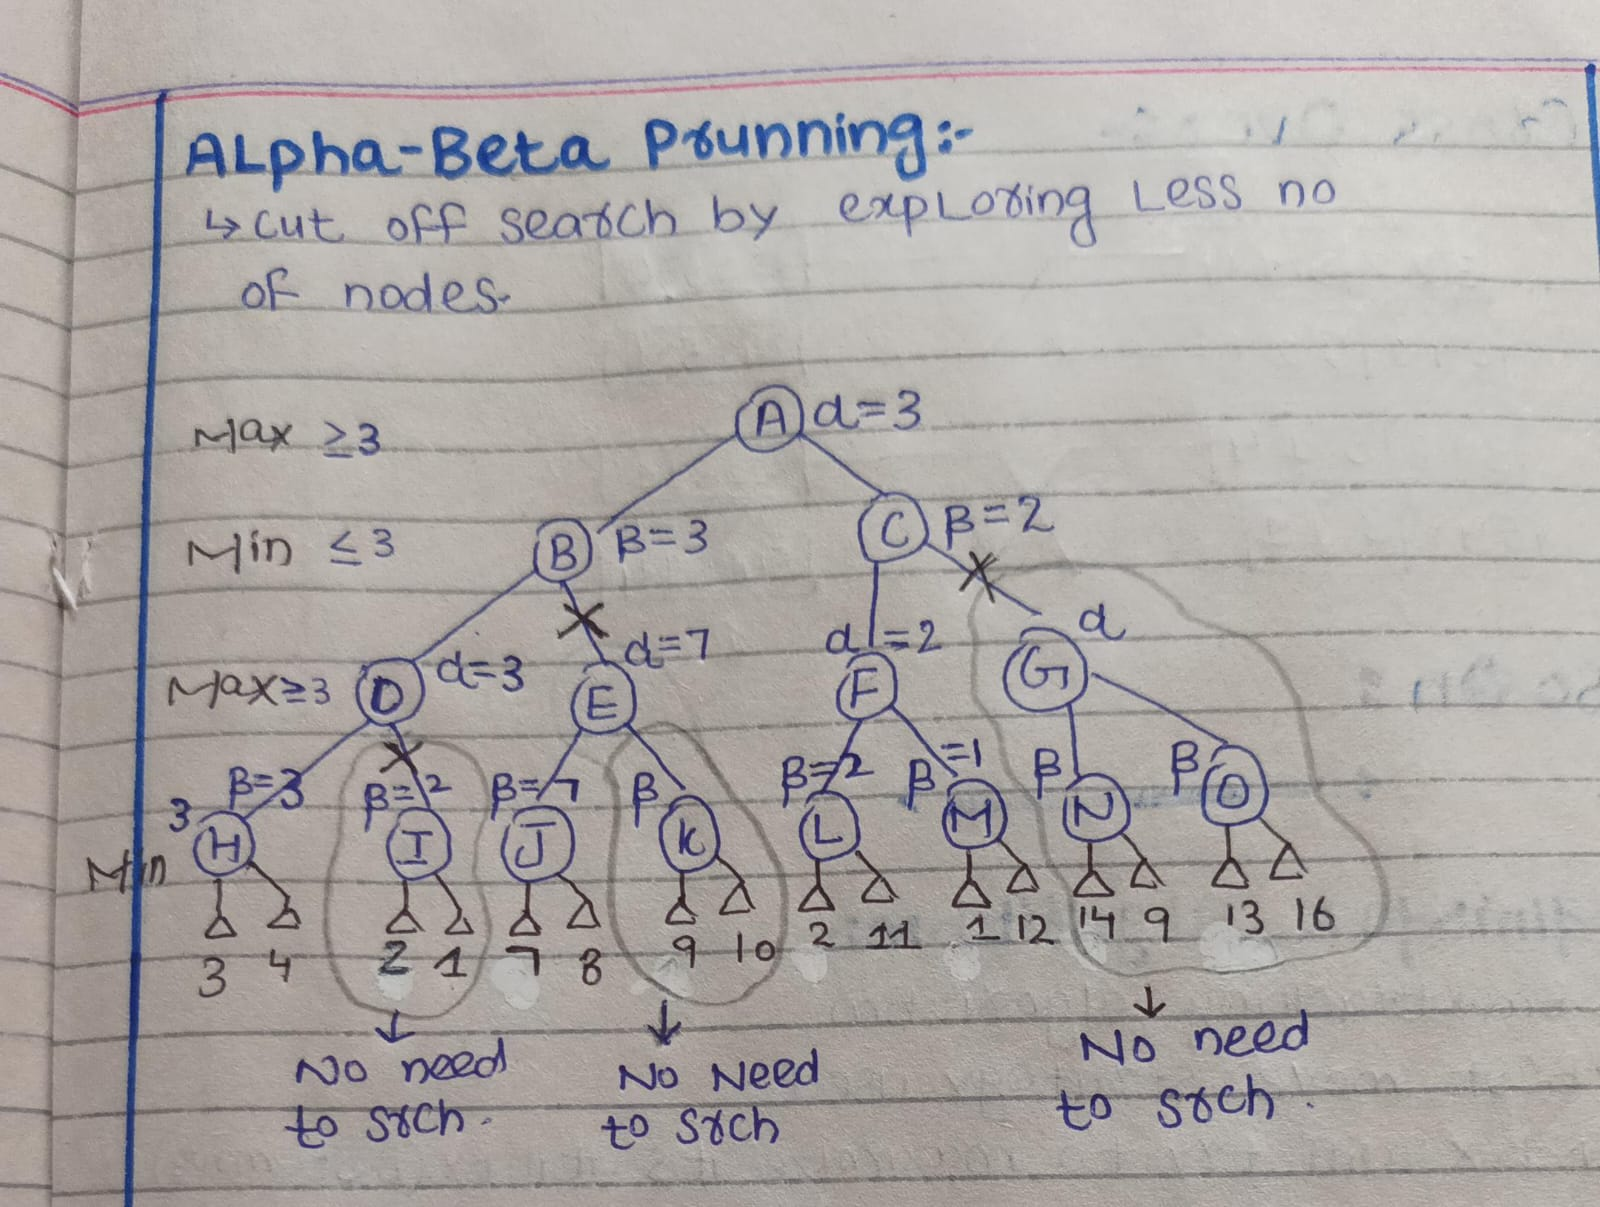 ALpha-Beta Prunning:-
↳ cut off search by expLoring Less no
of nodes.
Max ≥3 A α=3
Min ≤3 B β=3 C β=2
Max≥3 D α=3 E α=7 F α=2 G α
Min 3 H β=3 I β=2 J β=7 K β L β=2 M β=1 N β O β
3 4 2 1 7 8 9 10 2 11 1 12 14 9 13 16
No need to srch. No Need to srch No need to srch.